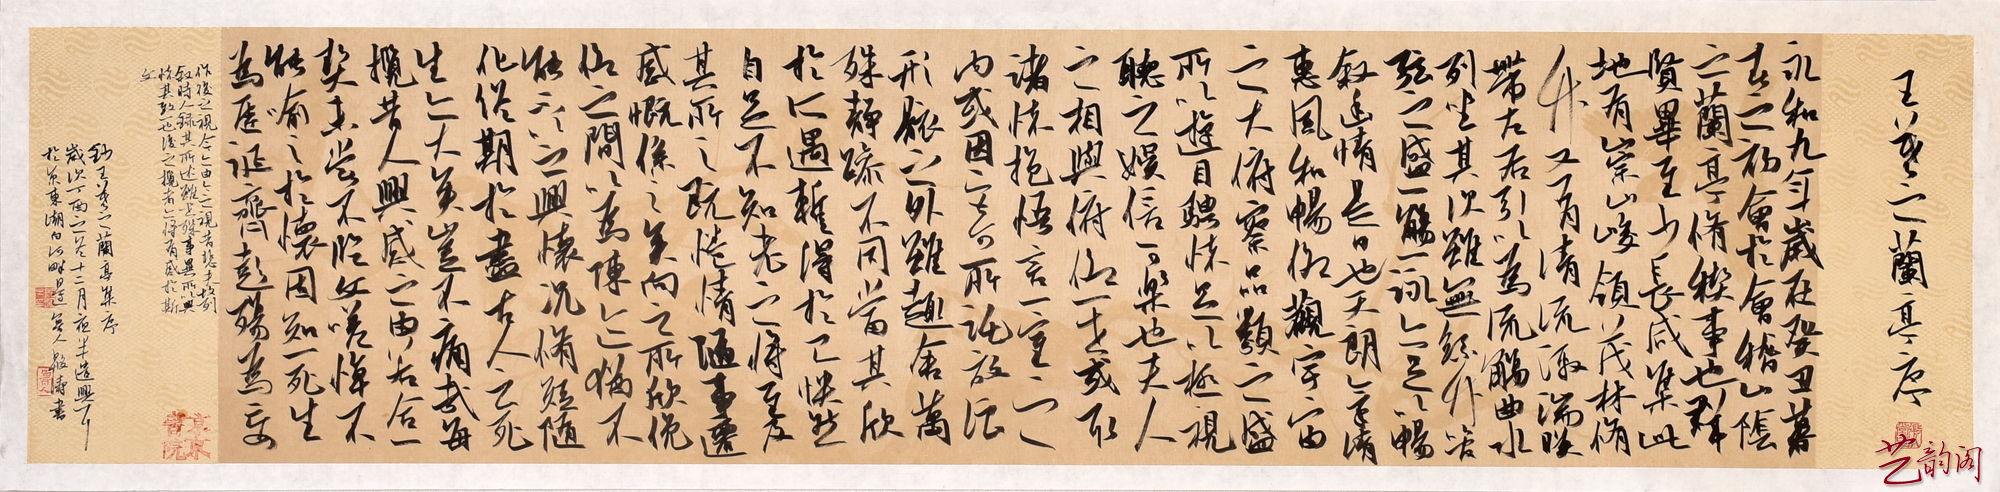 王羲之蘭亭序
永和九年歲在癸丑暮
春之初會於會稽山陰
之蘭亭脩稧事也群
賢畢至少長咸集此
地有崇山峻領茂林脩
竹又有清流激湍暎
帶左右引以為流觴曲水
列坐其次雖無絲竹管
弦之盛一觴一詠亦足以暢
敘幽情是日也天朗氣清
惠風和暢仰觀宇宙
之大俯察品類之盛
所以遊目騁懷足以極視
聽之娛信可樂也夫人
之相與俯仰一世或取
諸懷抱悟言一室之
內或因寄所託放浪
形骸之外雖趣舍萬
殊靜躁不同當其欣
於所遇暫得於己怏然
自足不知老之將至及
其所之既惓情隨事遷
感慨係之矣向之所欣俛
仰之間以為陳迹猶不
能不以之興懷況脩短隨
化終期於盡古人云死
生亦大矣豈不痛哉每
攬昔人興感之由若合一
契未嘗不臨文嗟悼不
能喻之於懷固知一死生
為虛誕齊彭殤為妄
作後之視今亦由今之視昔悲夫故列
敘時人錄其所述雖世殊事異所以興
懷其致一也後之攬者亦將有感於斯
文
鈔王羲之蘭亭集序
歲次丁酉之冬十二月夜半
於京東潮白河畔
艺韵阁